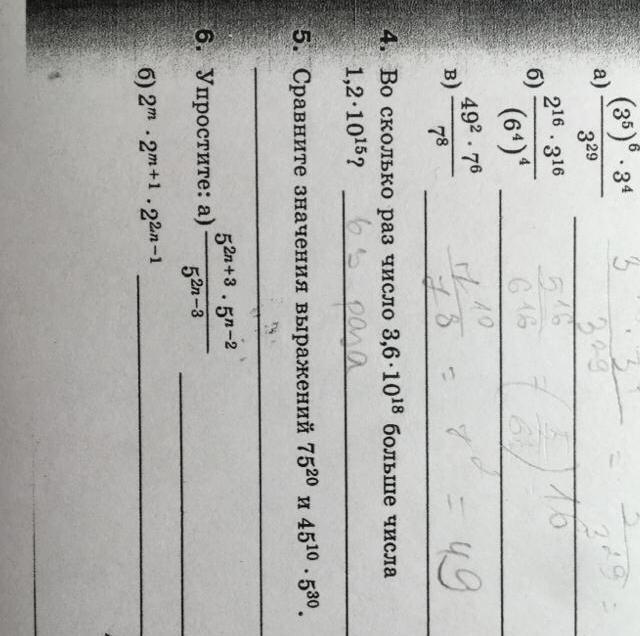 а) (3⁵)⁶ · 3⁴ / 3²⁹
б) 2¹⁶ · 3¹⁶ / (6⁴)⁴
5¹⁶ / 6¹⁶
в) 49² · 7⁶ / 7⁸
7¹⁰ / 7⁸ = 7² = 49
4. Во сколько раз число 3,6·10¹⁸ больше числа
1,2·10¹⁵? в 3 раза
5. Сравните значения выражений 75²⁰ и 45¹⁰ · 5³⁰.
6. Упростите: а) 5²ⁿ⁺³ · 5ⁿ⁻² / 5²ⁿ⁻³
б) 2ᵐ · 2ᵐ⁺¹ · 2²ⁿ⁻¹